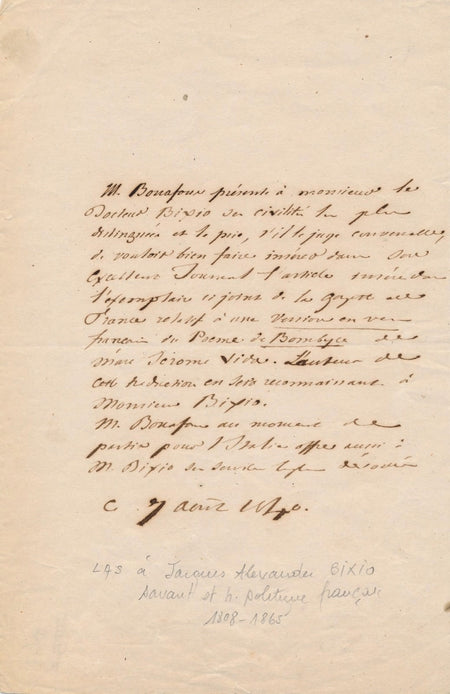 M. Bonafous présente à monsieur le
Docteur Bixio ses civilités les plus
distinguées et le prie, s'il le juge convenable,
de vouloir bien faire insérer dans son
excellent Journal l'article inséré dans
l'exemplaire ci joint de la Gazette de
France relatif à une Version en vers
français du Poème de Bombyce de
Marc Jérome Vida. L'auteur de
cette traduction en sera reconnaissant à
Monsieur Bixio.
M. Bonafous au moment de
partir pour l'Italie offre aussi à
M. Bixio ses services les plus dévoués
C 7 août 1840.
LAS à Jacques Alexandre BIXIO
savant et h. politique français
1808-1865